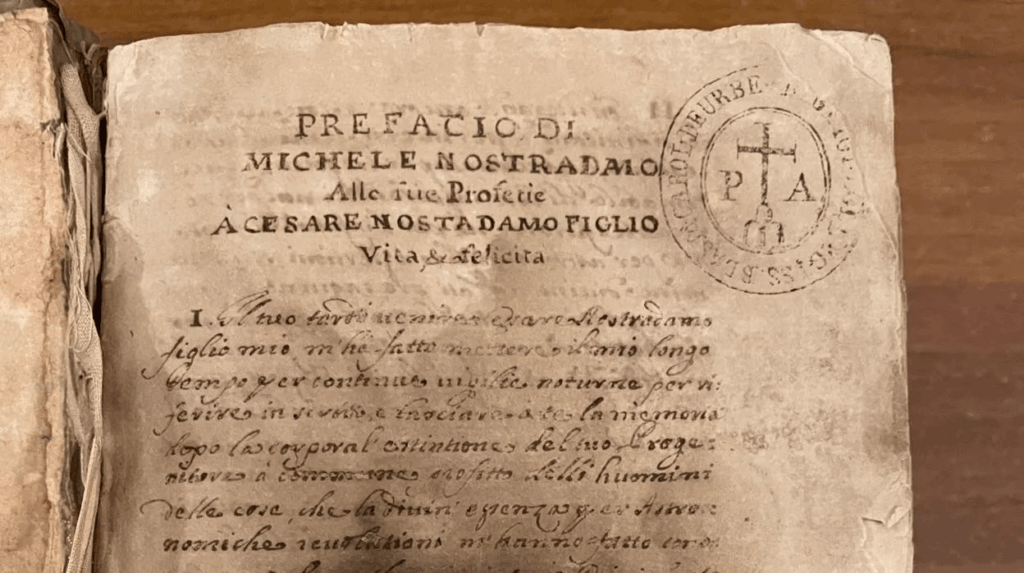 PREFATIO DI
MICHELE NOSTRADMO
Alle sue Profetie
À CESARE NOSTADAMO FIGLIO
Vita & felicita
I. Il tuo tardo venire Cesare Nostradamo
figlio mio, m'hà fatto mettere il mio longo
tempo per continue vigilie noturne per ri:
ferire in scritto, e lasciare à te la memoria
dopo la corporal estintione del tuo Proge:
nitore à commune profitto delli huomini
delle cose, che la divin' essenza per Astro:
nomiche revolutioni m'hanno fatto cono:
P A
SS. BLASII CAROL DE URBE